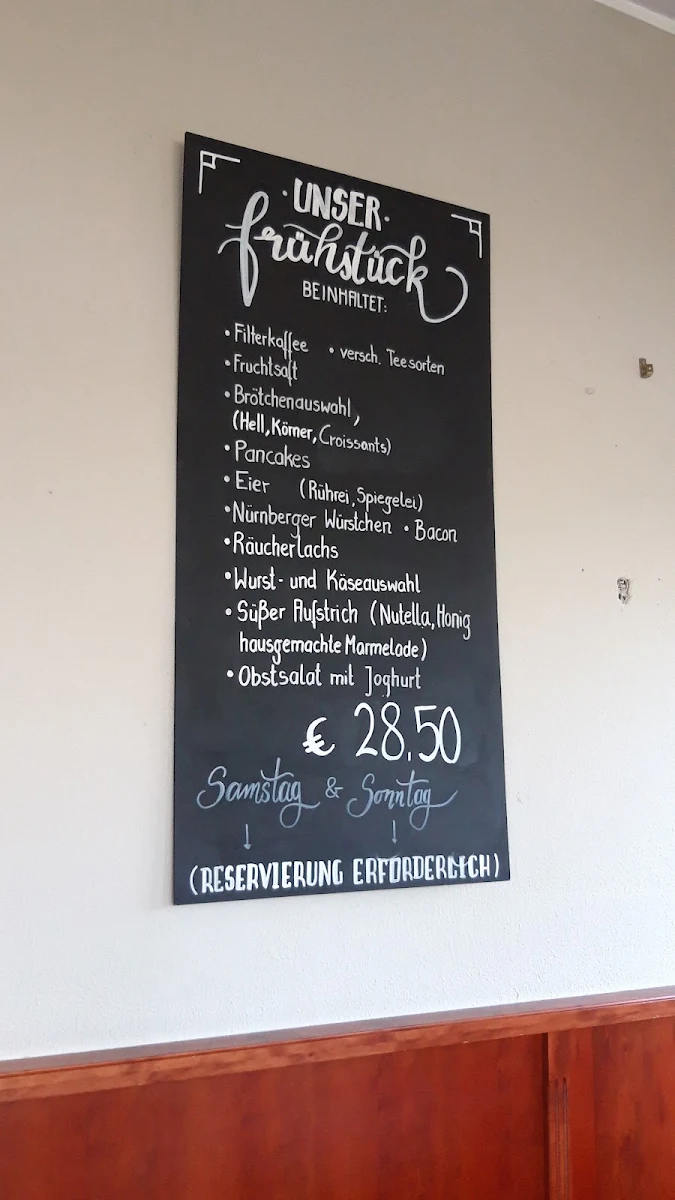 ·UNSER·
frühstück
BEINHALTET:
• Filterkaffee • versch. Teesorten
• Fruchtsaft
• Brötchenauswahl,
(Hell, Körner, Croissants)
• Pancakes
• Eier (Rührei, Spiegelei)
• Nürnberger Würstchen • Bacon
• Räucherlachs
• Wurst- und Käseauswahl
• Süßer Aufstrich (Nutella, Honig
hausgemachte Marmelade)
• Obstsalat mit Joghurt
€ 28.50
Samstag & Sonntag
↓ ↓
(RESERVIERUNG ERFORDERLICH)